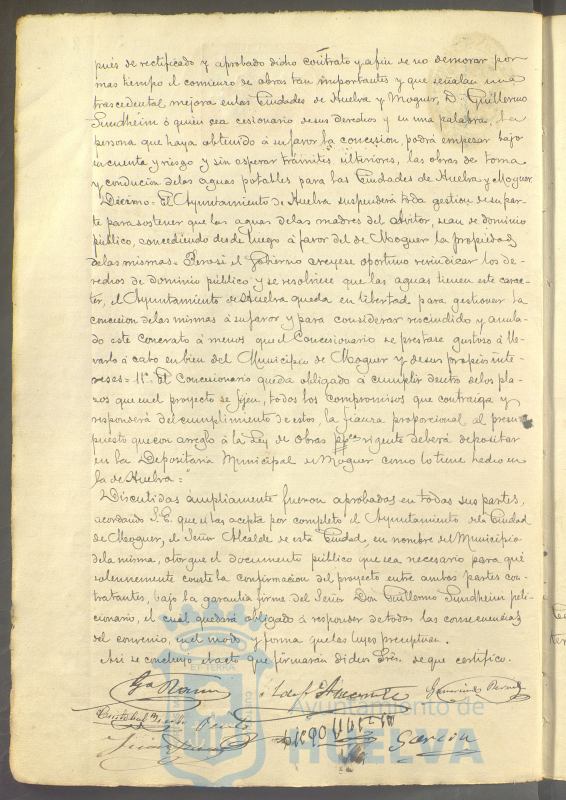 pués de rectificado y aprobado dicho contrato y afin de no demorar por
mas tiempo el comienzo de obras tan importantes y que señalan una
trascedental mejora en las Ciudades de Huelva y Moguer, D. Guillermo
Sundheim ó quien sea cesionario de sus derechos y en una palabra, la
persona que haya obtenido á su favor la concesion, podrá empezar bajo
su cuenta y riesgo y sin esperar trámites ulteriores, las obras de toma
y conducion de las aguas potables para las Ciudades de Huelva y Moguer
Décimo. El Ayuntamiento de Huelva suspenderá toda gestion de su par-
te para sostener que las aguas de las madres del Avitor, sean de dominio
público, concediendo desde luego á favor del de Moguer la propiedad
de las mismas. Pero si el Gobierno creyese oportuno reivindicar los de-
rechos de dominio público y se resolviese que las aguas tienen este carac-
ter, el Ayuntamiento de Huelva queda en libertad para gestionar la
concesion de las mismas á su favor y para considerar rescindido y anula-
do este Concrato á menos que el Concesionario se prestase gustoso á lle-
varlo á cabo en bien del Municipio de Moguer y de sus propios inte-
reses = 11ª. El Concesionario queda obligado á cumplir dentro de los pla-
zos que en el proyecto se fijen, todos los compromisos que contraiga y
responderá del cumplimiento de estos, la fianza proporcional al presu-
puesto que con arreglo á la Ley de obras ppcas vigente deberá depositar
en la Depositaria Municipal de Moguer como lo tiene hecho en
la de Huelva =
Discutidas ampliamente fueron aprobadas en todas sus partes,
acordando S.E. que si las acepta por completo el Ayuntamiento de la Ciudad
de Moguer, el Señor Alcalde de esta Ciudad, en nombre del Municipio
de la misma, otorgue el documento público que sea necesario para que
solemnemente conste la confirmacion del proyecto entre ambas partes con-
tratantes, bajo la garantia firme del Señor Don Guillermo Sundheim peti-
cionario, el cual quedará obligado á responder de todas las consecuencias
del convenio, en el modo y forma que las leyes preceptuan.
Asi se concluyó el acto que firmarán dichos Sres. de que certifico.
García
ET TERRA
Ayuntamiento de
HUELVA